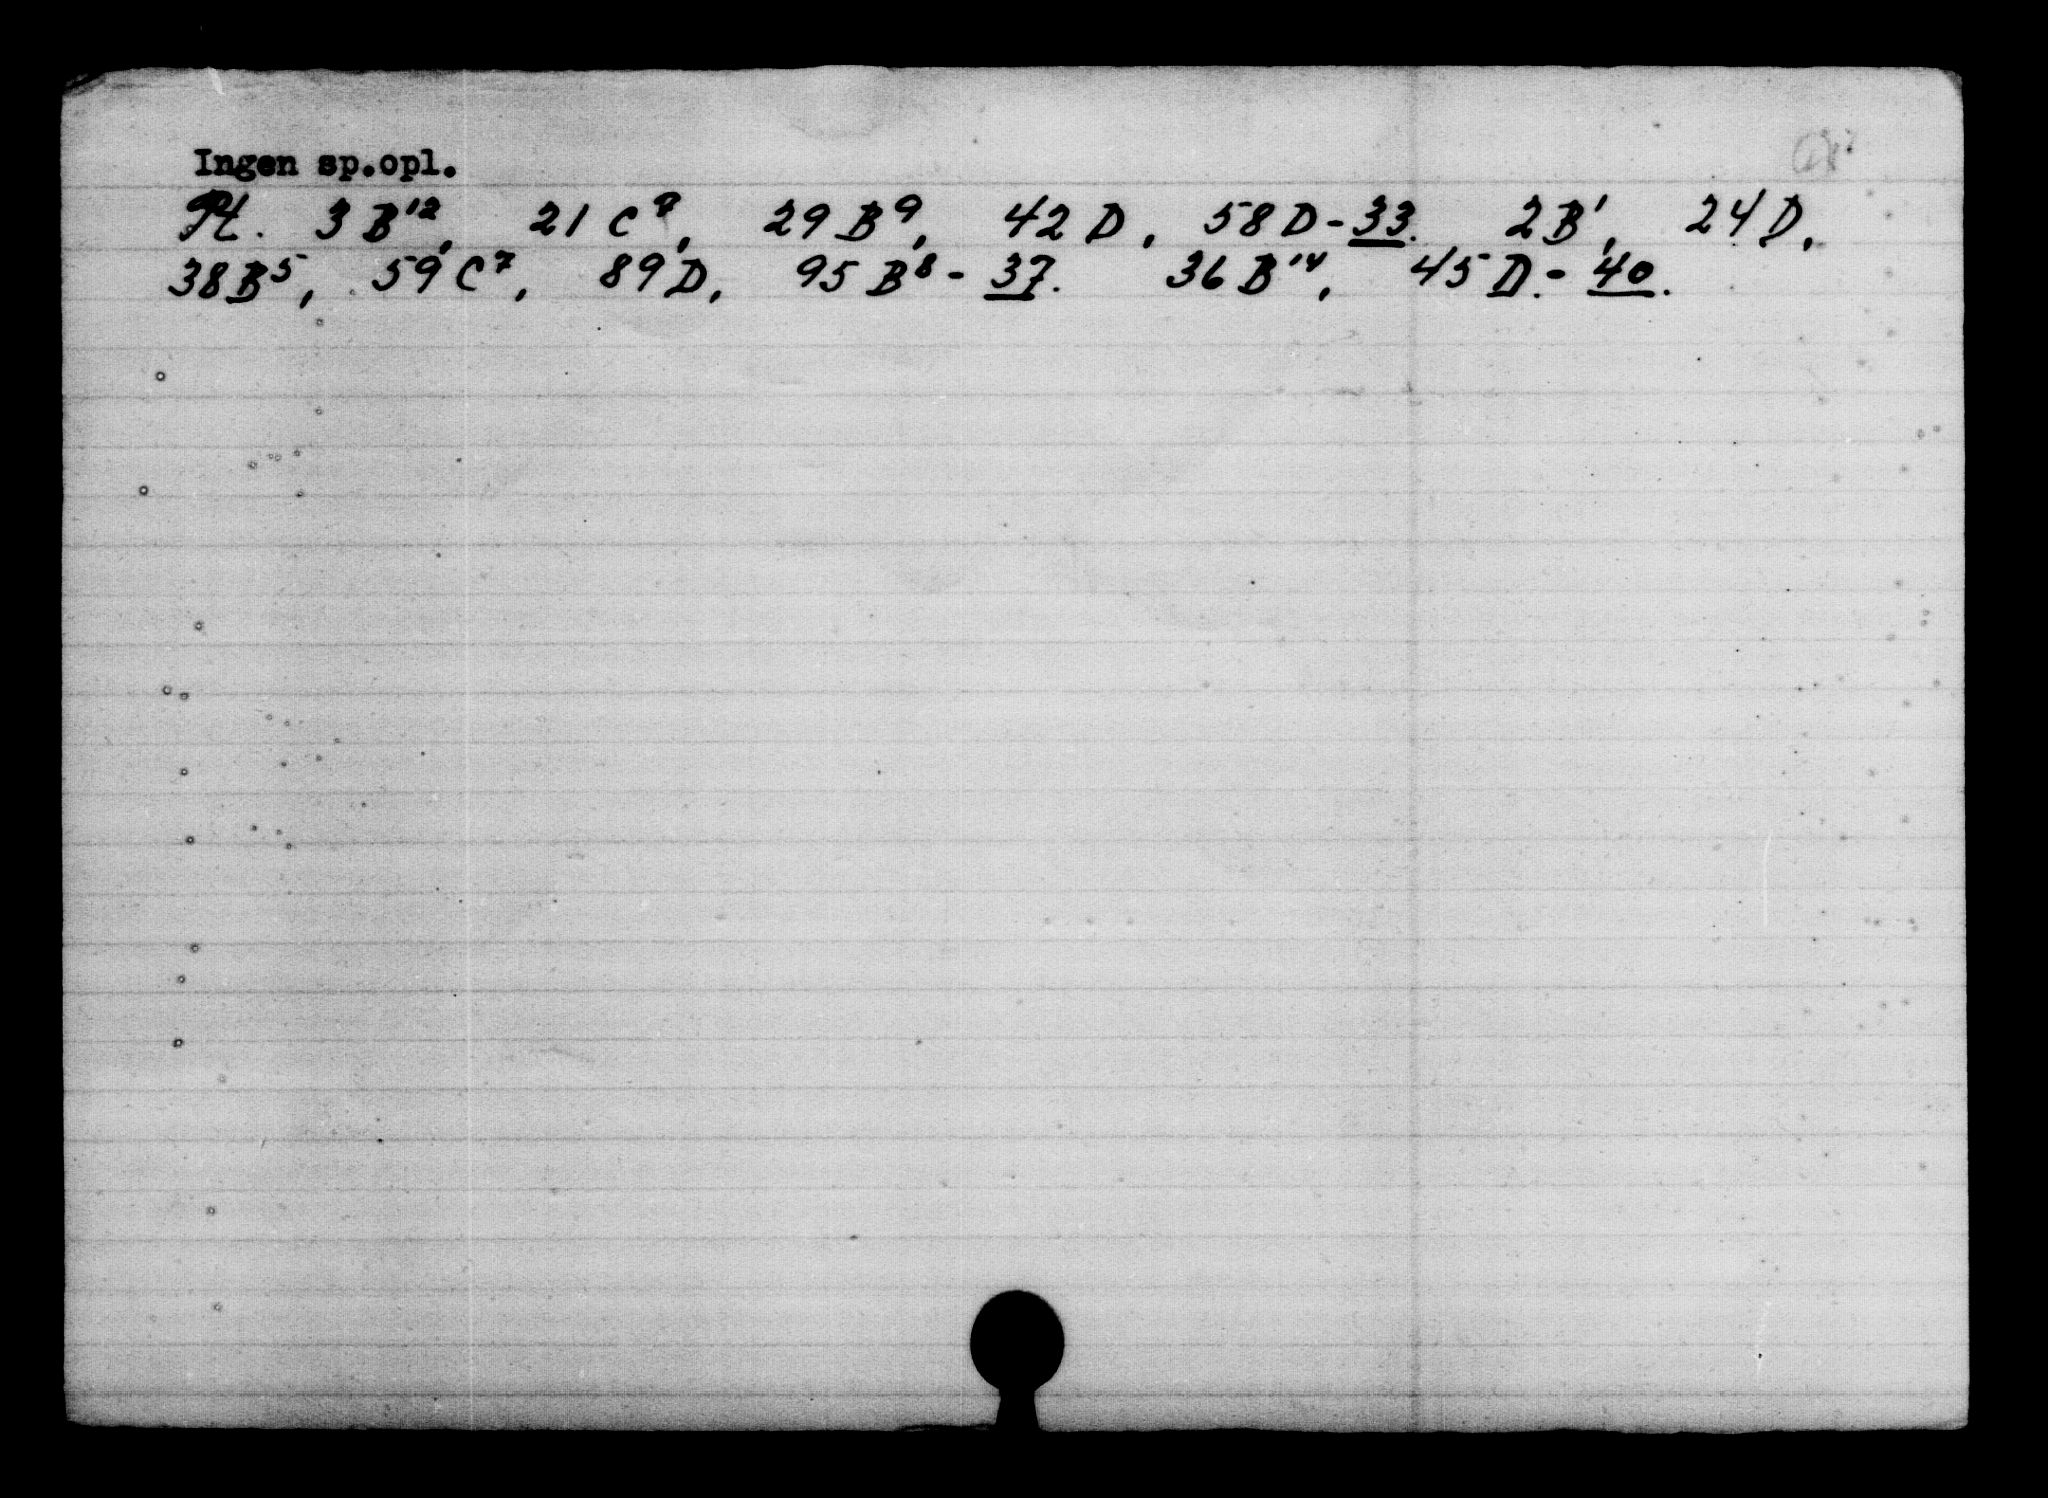 Ingen sp.opl.
Pt. 3 B¹², 21 C⁸, 29 B⁹, 42 D, 58 D - 33. 2 B¹, 24 D,
38 B⁵, 59 C⁷, 89 D, 95 B⁸ - 37. 36 B¹⁴, 45 D. - 40.